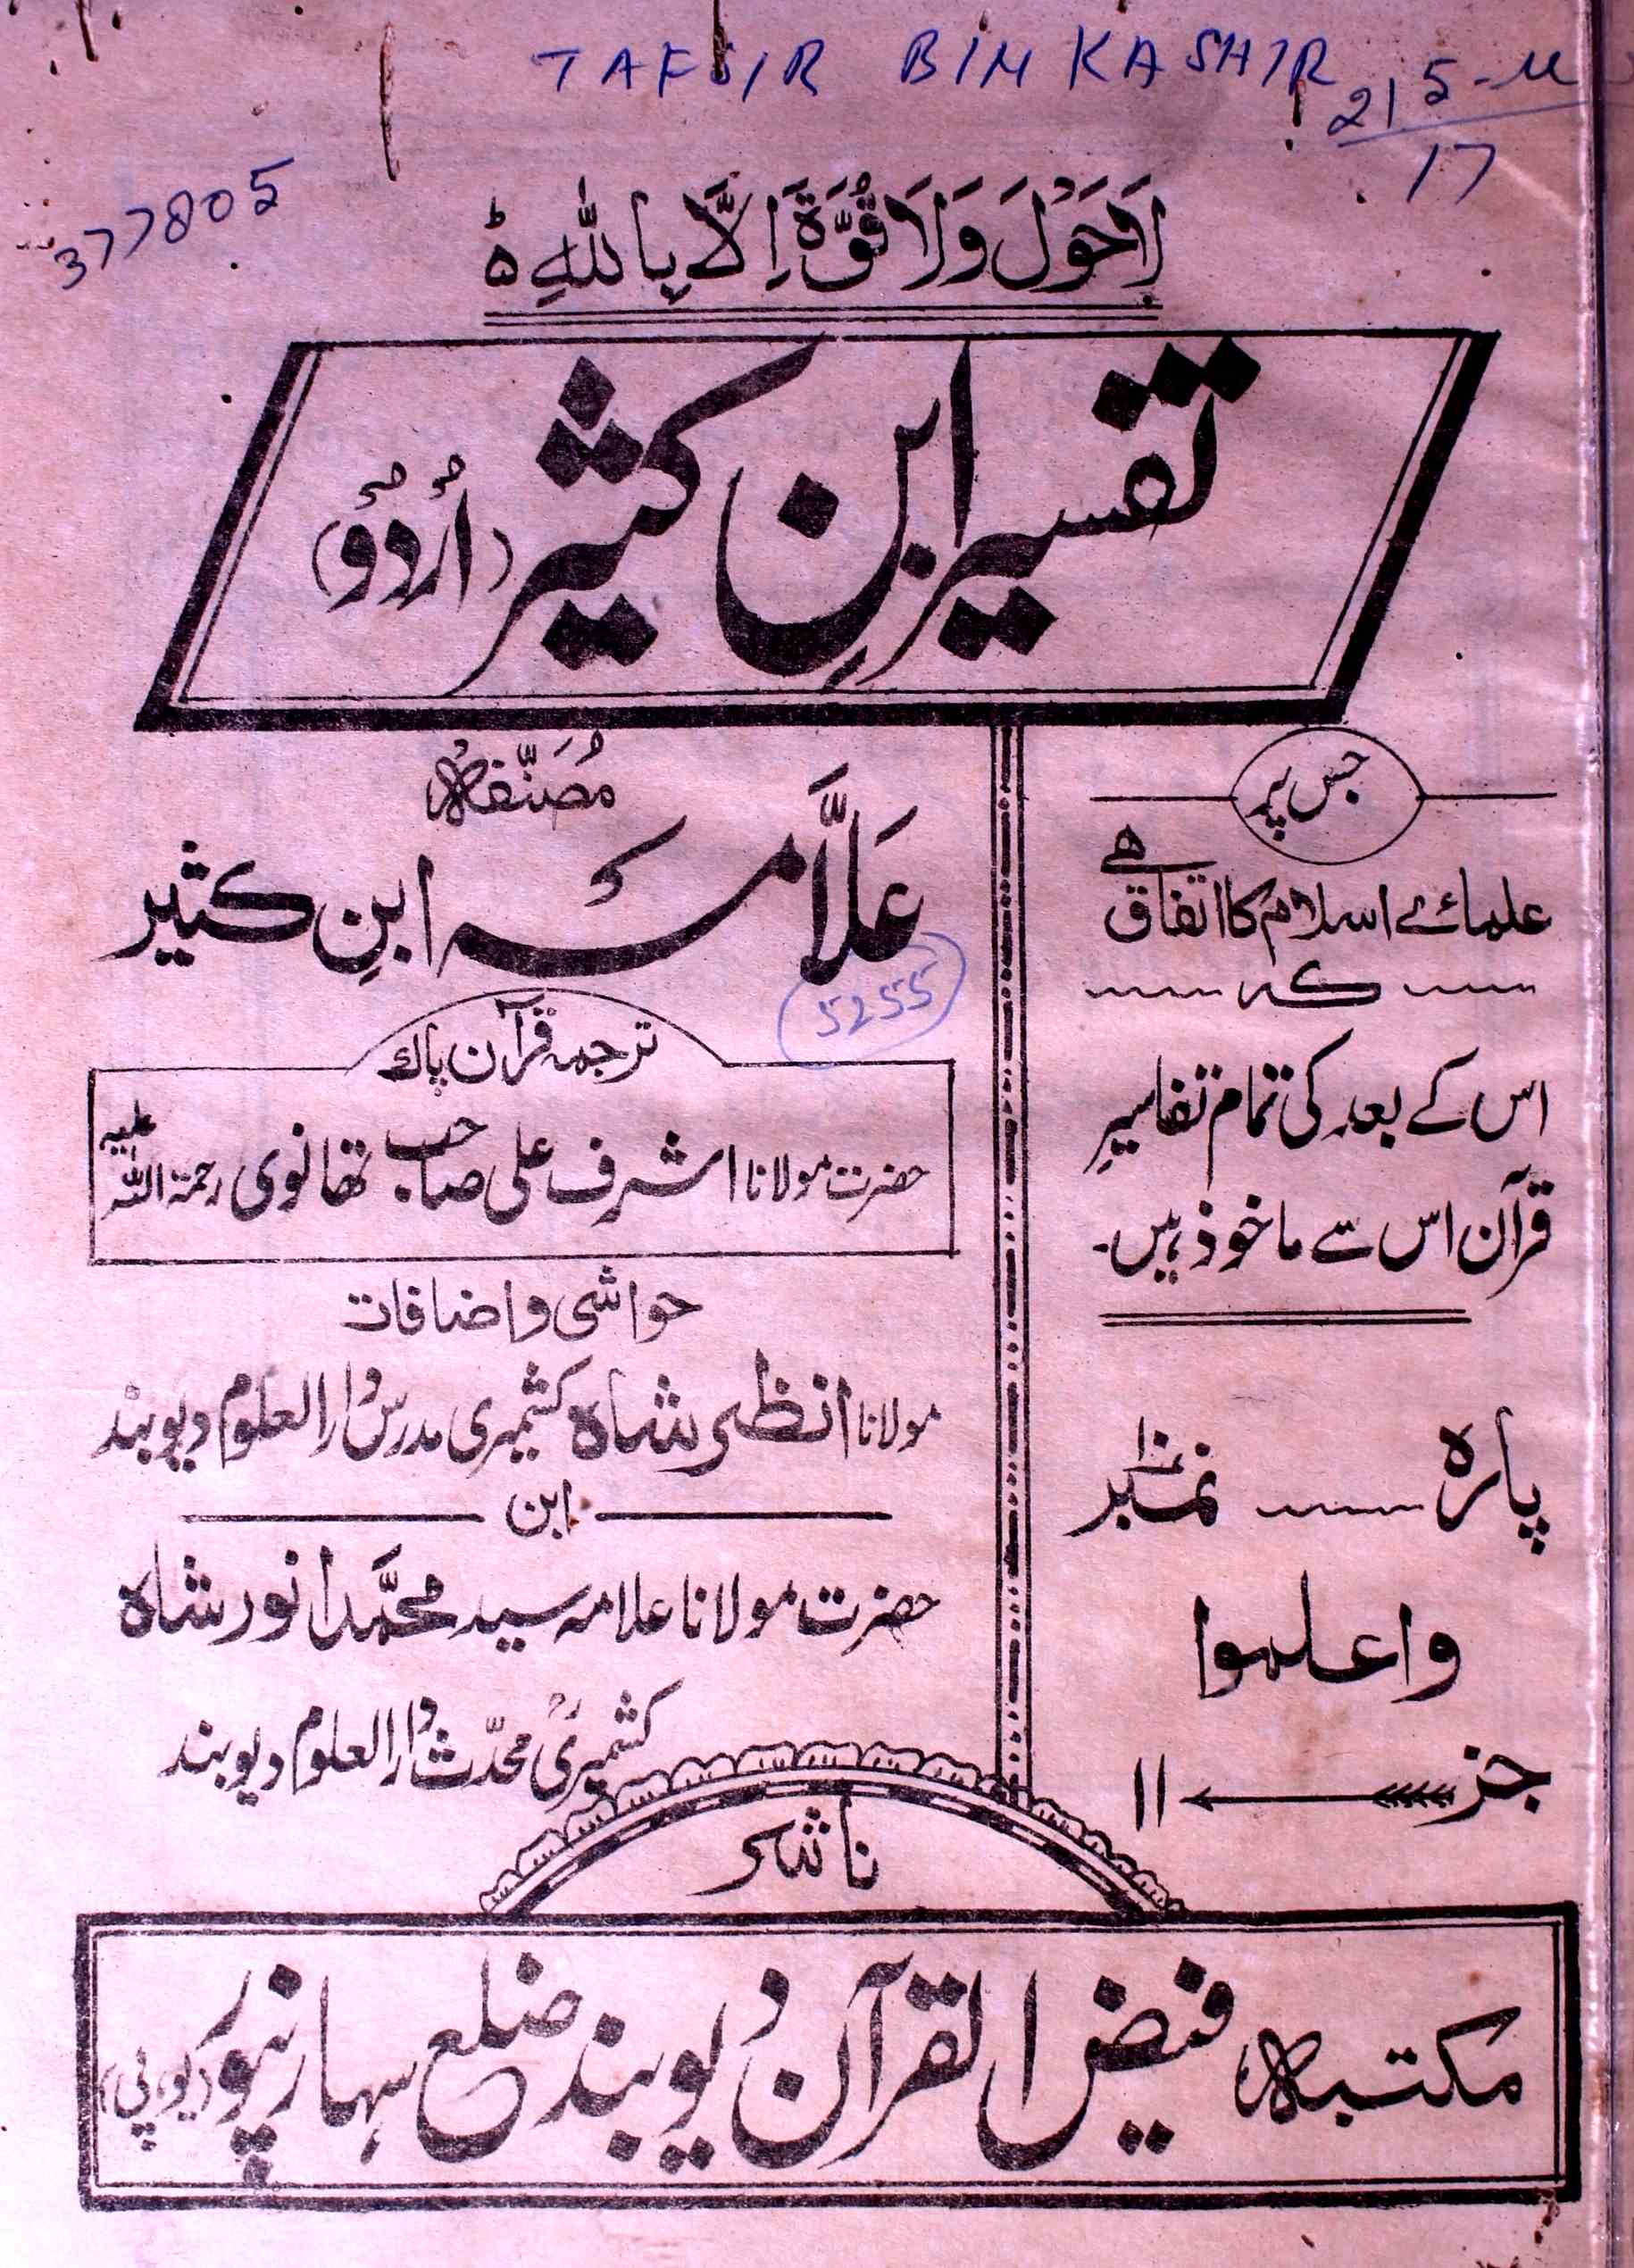 TAFSIR BIN KASHIR
215-U
17
377805
لَاحَوْلَ وَلَا قُوَّةَ اِلَّا بِاللّٰهِ ط
تفسیر ابنِ کثیر (اُردُو)
مُصَنّفہ
عَلَّامہ ابنِ کثیر
5255
ترجمہ قرآن پاک
حضرت مولانا اشرف علی صاحب تھانوی رحمۃ اللہ علیہ
حواشی و اضافات
مولانا انظر شاہ کشمیری مدرس دارالعلوم دیوبند
ابن
حضرت مولانا علامہ سید محمَّد انور شاہ
کشمیریؒ محدّث دارالعلوم دیوبند
جس پر
علمائے اسلام کا اتفاق ہے
کہ
اس کے بعد کی تمام تفاسیرِ
قرآن اس سے ماخوذ ہیں۔
پارہ نمبر ۱۰
واعلموا
جز ۱۱
ناشر
مکتبہ فیض القرآن دیوبند ضلع سہارنپور (یو، پی)